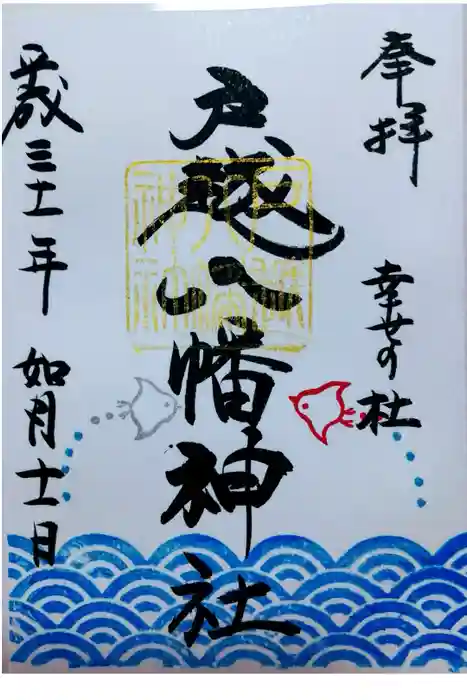 奉拝
幸せの杜
戸越八幡神社
平成三十一年
如月十一日